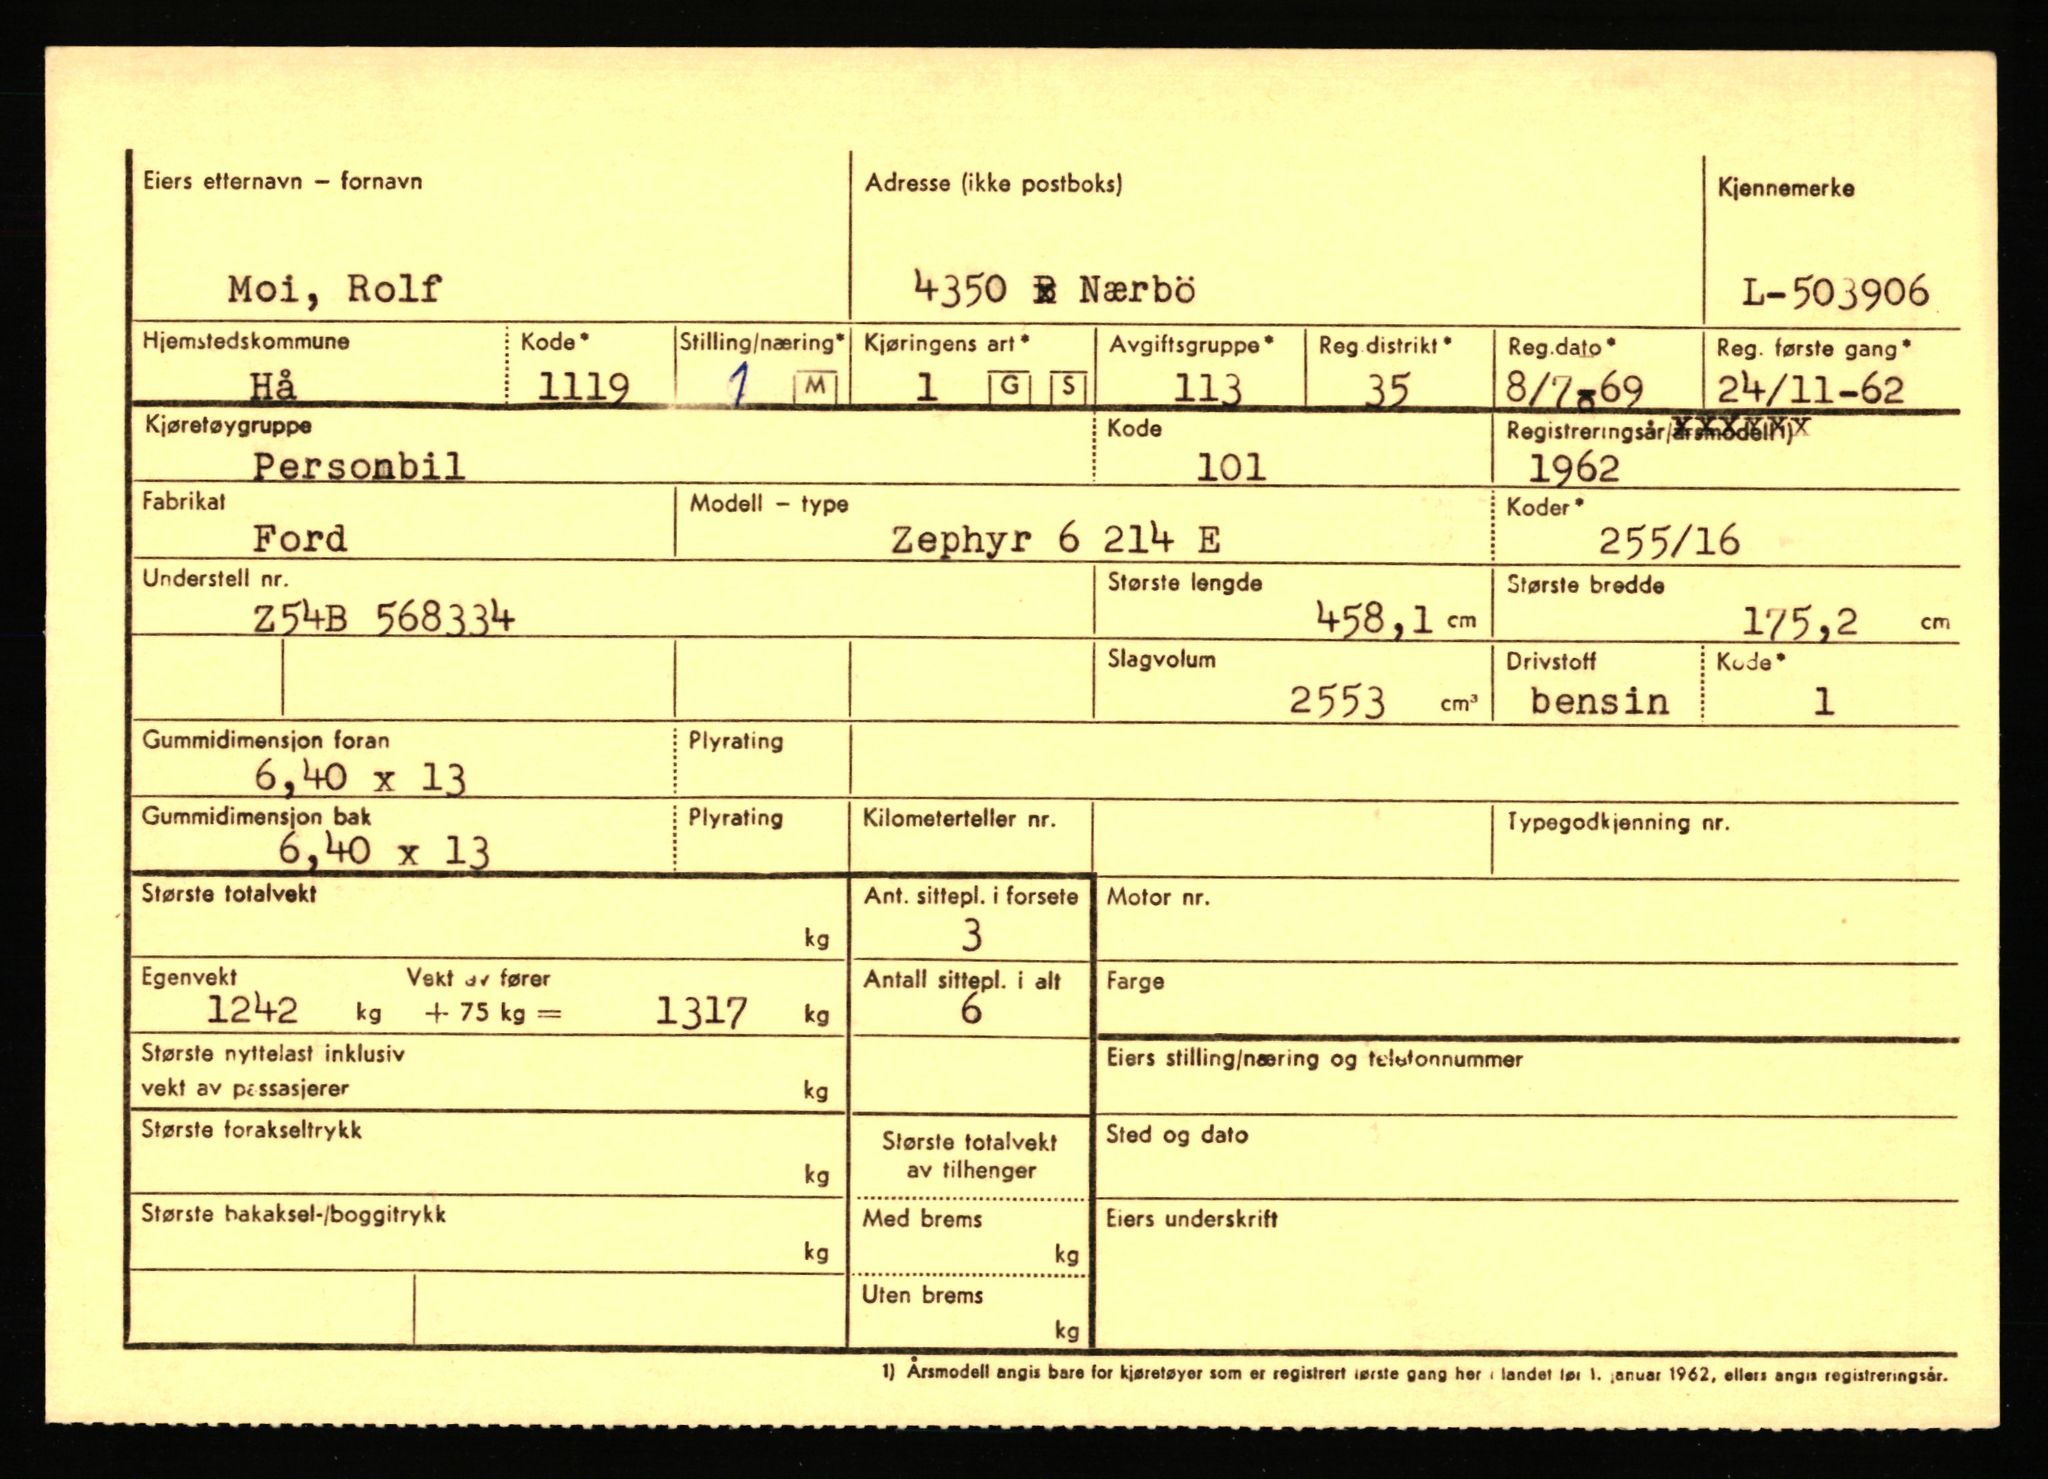 Eiers etternavn – fornavn
Adresse (ikke postboks)
Kjennemerke
Moi, Rolf
4350 Nærbö
L-503906
Hjemstedskommune
Kode*
Stilling/næring*
Kjøringens art*
Avgiftsgruppe*
Reg.distrikt*
Reg.dato*
Reg. første gang*
Hå
1119
1 M
1 G S
113
35
8/7-69
24/11-62
Kjøretøygruppe
Kode
Registreringsår/årsmodell 1)
Personbil
101
1962
Fabrikat
Modell – type
Koder*
Ford
Zephyr 6 214 E
255/16
Understell nr.
Største lengde
Største bredde
Z54B 568334
458,1 cm
175,2 cm
Slagvolum
Drivstoff
Kode*
2553 cm³
bensin
1
Gummidimensjon foran
Plyrating
6,40 x 13
Gummidimensjon bak
Plyrating
Kilometerteller nr.
Typegodkjenning nr.
6,40 x 13
Største totalvekt
kg
Ant. sittepl. i forsete
3
Motor nr.
Egenvekt
Vekt av fører
1242 kg + 75 kg = 1317 kg
Antall sittepl. i alt
6
Farge
Største nyttelast inklusiv
vekt av passasjerer
kg
Eiers stilling/næring og telefonnummer
Største forakseltrykk
kg
Største totalvekt
av tilhenger
Sted og dato
Største bakaksel-/boggitrykk
kg
Med brems
kg
Eiers underskrift
Uten brems
kg
1) Årsmodell angis bare for kjøretøyer som er registrert første gang her i landet før 1. januar 1962, ellers angis registreringsår.